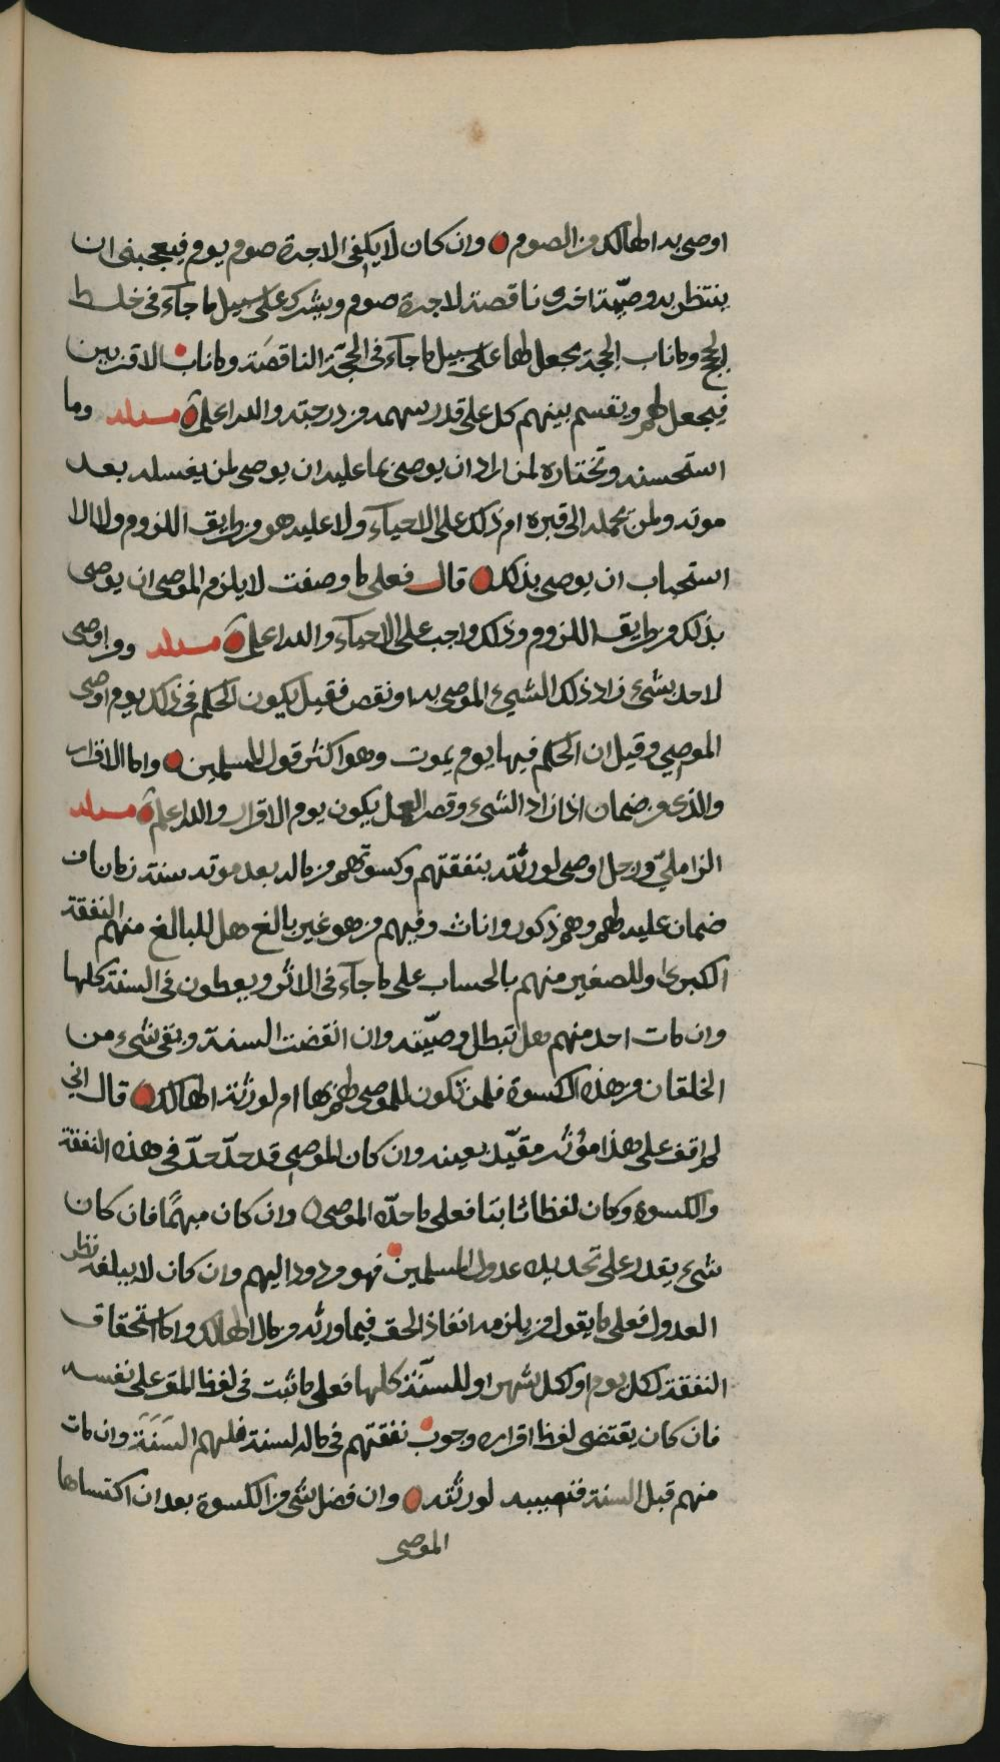 اوصى به الهالك من الصوم وان كان لا يكفى الاجرة صوم يوم فيعجبنى ان
ينتظر به وصيّة اخرى ناقصة لاجرة صوم ويشرك على سبيل ما جآء فى خلط
الحج وما ناب الحجة يجعل لهما على سبيل ما جآء فى الحجّة الناقصة وما ناب الاقربين
فيجعل لهم ويقسم بينهم كل على قدر سهمه من درجته والله اعلم مسئله وما
استحسنه وتختاره لمن اراد ان يوصى بما عليه ان يوصى لمن يغسله بعد
موته ولمن يحمله الى قبره ام ذلك على الاحيآء ولا عليه هو من طريق اللزوم ولا الا
استحباب ان يوصى بذلك قال فعلى ما وصفت لا يلزم الموصى ان يوصى
بذلك من طريق اللزوم وذلك واجب على الاحيآء والله اعلم مسئله ومن اوصى
لاحد بشىء زاد ذلك الشيء الموصى به او نقص فقيل يكون الحكم فى ذلك يوم اوصى
الموصي وقيل ان الحكم فيها يوم يموت وهو اكثر قول المسلمين واما الاقرار
والذى من ضمان اذا زاد الشىء وقصر العمل يكون يوم الاقرار والله اعلم مسئله
الزاملي فى رجل اوصى لورثته بنفقتهم وكسوتهم من ماله بعد موته سنة زمانا من
ضمان عليه لهم وهم ذكور واناث وفيهم من هو غير بالغ هل للبالغ منهم النفقة
الكبرى وللصغير منهم بالحساب على ما جآء فى الاثر ويعطون فى السنة كلها
وان مات احد منهم هل تبطل وصيّته وان انقضت السنة وبقى شىء من
الخلقان من هذه الكسوة فلمن تكون للموصى لهم بها ام لورثة الهالك قال انى
لم اقف على هذا مؤثر مقيّد بعينه وان كان الموصي قد حدّ حدّ فى هذه النفقة
والكسوة وكان لفظا ثابتا فعلى ما حدّه الموصى وان كان مبهمًا فان كان
شىء يقدر على تحديده عدول المسلمين فهو مردود اليهم وان كان لا يبلغه نظر
العدول فعلى ما يقول من يلزمه انفاذ الحق فيما ورثه من مال الهالك واما استحقاق
النفقة لكل يوم او لكل شهر او للسنة كلها فعلى ما ثبت فى لفظ المقر على نفسه
فان كان يقتضى لفظ اقراره وجوب نفقتهم فى ماله لسنة فلهم السنة وان مات
منهم قبل السنة فنصيبه لورثته وان فضل شىء من الكسوة بعد ان اكتساها
الموصى